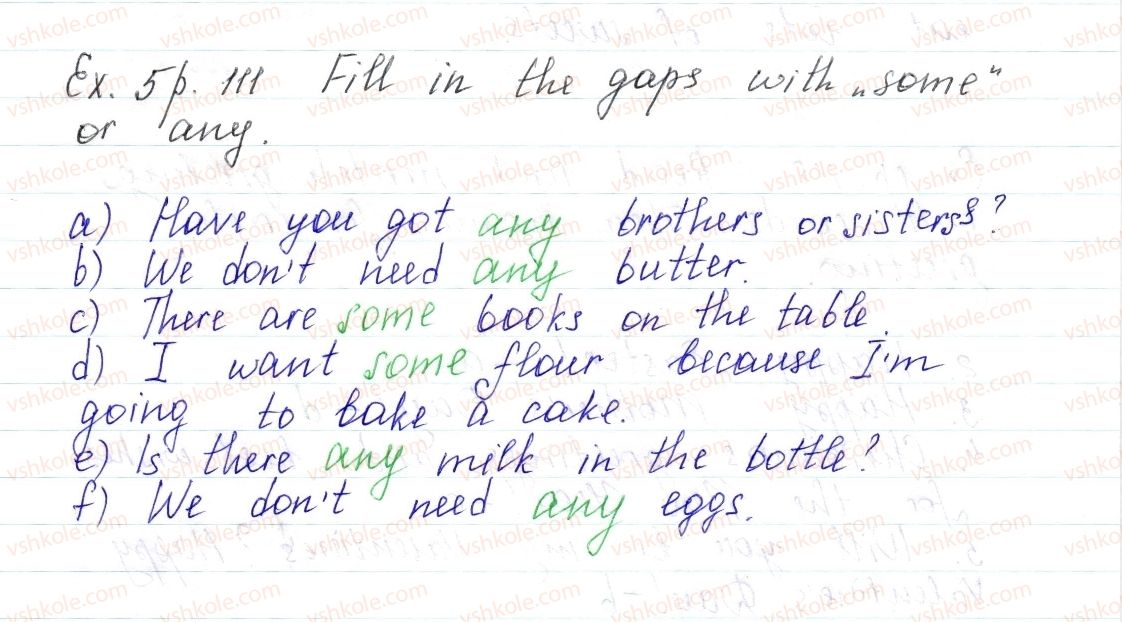 Ex. 5 p. 111 Fill in the gaps with „some“
or any.
a) Have you got any brothers or sisters?
b) We don't need any butter.
c) There are some books on the table.
d) I want some flour because I'm
going to bake a cake.
e) Is there any milk in the bottle?
f) We don't need any eggs.
vshkole.com